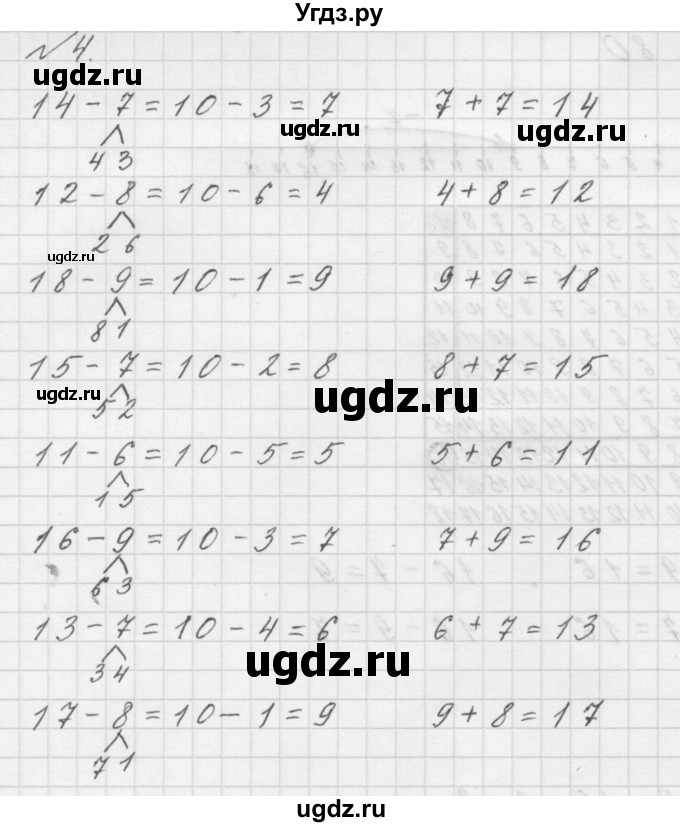 Угдз.ру
№4.
ugdz.ru
14 - 7 = 10 - 3 = 7 7 + 7 = 14
ugdz.ru ugdz.ru
4 3
12 - 8 = 10 - 6 = 4 4 + 8 = 12
2 6
ugdz.ru
18 - 9 = 10 - 1 = 9 9 + 9 = 18
8 1
15 - 7 = 10 - 2 = 8 8 + 7 = 15
ugdz.ru ugdz.ru
5 2
11 - 6 = 10 - 5 = 5 5 + 6 = 11
1 5
16 - 9 = 10 - 3 = 7 7 + 9 = 16
6 3
13 - 7 = 10 - 4 = 6 6 + 7 = 13
ugdz.ru
3 4
17 - 8 = 10 - 1 = 9 9 + 8 = 17
7 1
ugdz.ru